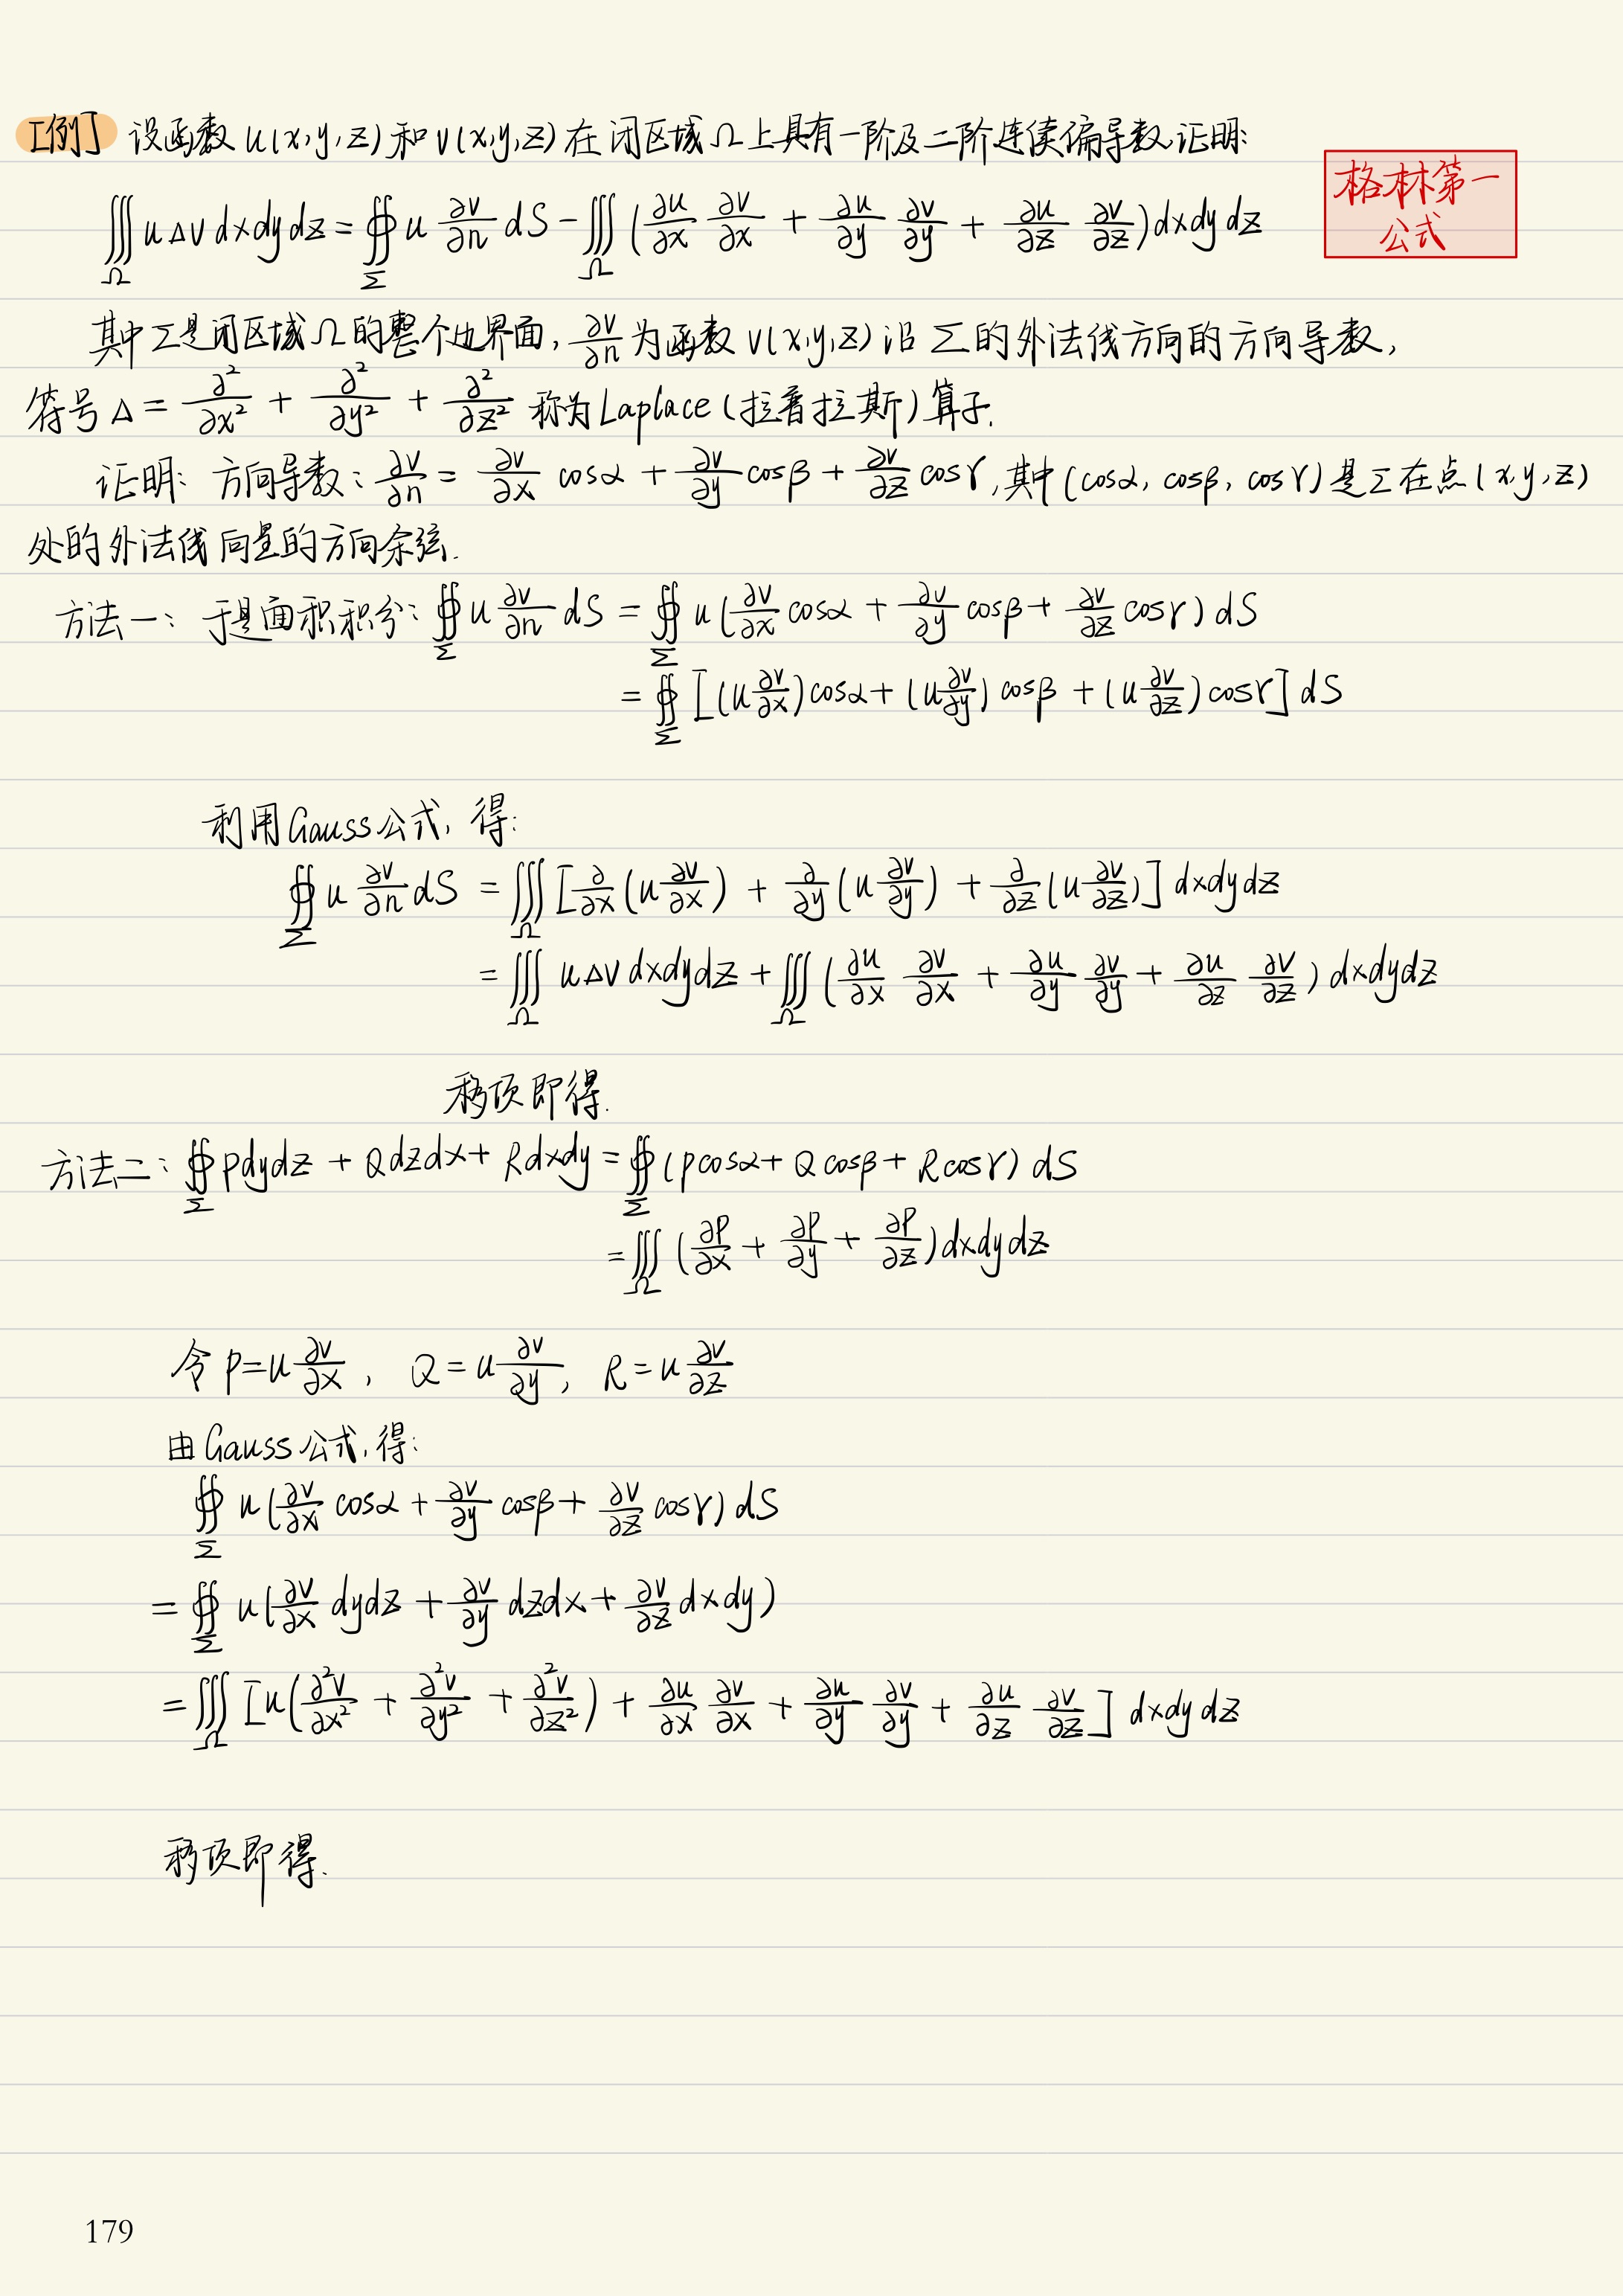 [例] 设函数 u(x,y,z) 和 v(x,y,z) 在闭区域 Ω 上具有一阶及二阶连续偏导数,证明:
格林第一
公式
∭_Ω u Δv dxdydz = ∯_Σ u ∂v/∂n dS - ∭_Ω (∂u/∂x ∂v/∂x + ∂u/∂y ∂v/∂y + ∂u/∂z ∂v/∂z) dxdydz
其中 Σ 是闭区域 Ω 的整个边界面, ∂v/∂n 为函数 v(x,y,z) 沿 Σ 的外法线方向的方向导数,
符号 Δ = ∂²/∂x² + ∂²/∂y² + ∂²/∂z² 称为 Laplace (拉普拉斯) 算子.
证明: 方向导数: ∂v/∂n = ∂v/∂x cosα + ∂v/∂y cosβ + ∂v/∂z cosγ, 其中 (cosα, cosβ, cosγ) 是 Σ 在点 (x,y,z)
处的外法线向量的方向余弦.
方法一: 于是面积积分: ∯_Σ u ∂v/∂n dS = ∯_Σ u (∂v/∂x cosα + ∂v/∂y cosβ + ∂v/∂z cosγ) dS
= ∯_Σ [(u ∂v/∂x) cosα + (u ∂v/∂y) cosβ + (u ∂v/∂z) cosγ] dS
利用 Gauss 公式, 得:
∯_Σ u ∂v/∂n dS = ∭_Ω [∂/∂x (u ∂v/∂x) + ∂/∂y (u ∂v/∂y) + ∂/∂z (u ∂v/∂z)] dxdydz
= ∭_Ω u Δv dxdydz + ∭_Ω (∂u/∂x ∂v/∂x + ∂u/∂y ∂v/∂y + ∂u/∂z ∂v/∂z) dxdydz
移项即得.
方法二: ∯_Σ Pdydz + Qdzdx + Rdxdy = ∯_Σ (Pcosα + Qcosβ + Rcosγ) dS
= ∭_Ω (∂P/∂x + ∂P/∂y + ∂P/∂z) dxdydz
令 P = u ∂v/∂x, Q = u ∂v/∂y, R = u ∂v/∂z
由 Gauss 公式, 得:
∯_Σ u (∂v/∂x cosα + ∂v/∂y cosβ + ∂v/∂z cosγ) dS
= ∯_Σ u (∂v/∂x dydz + ∂v/∂y dzdx + ∂v/∂z dxdy)
= ∭_Ω [u (∂²v/∂x² + ∂²v/∂y² + ∂²v/∂z²) + ∂u/∂x ∂v/∂x + ∂u/∂y ∂v/∂y + ∂u/∂z ∂v/∂z] dxdydz
移项即得.
179